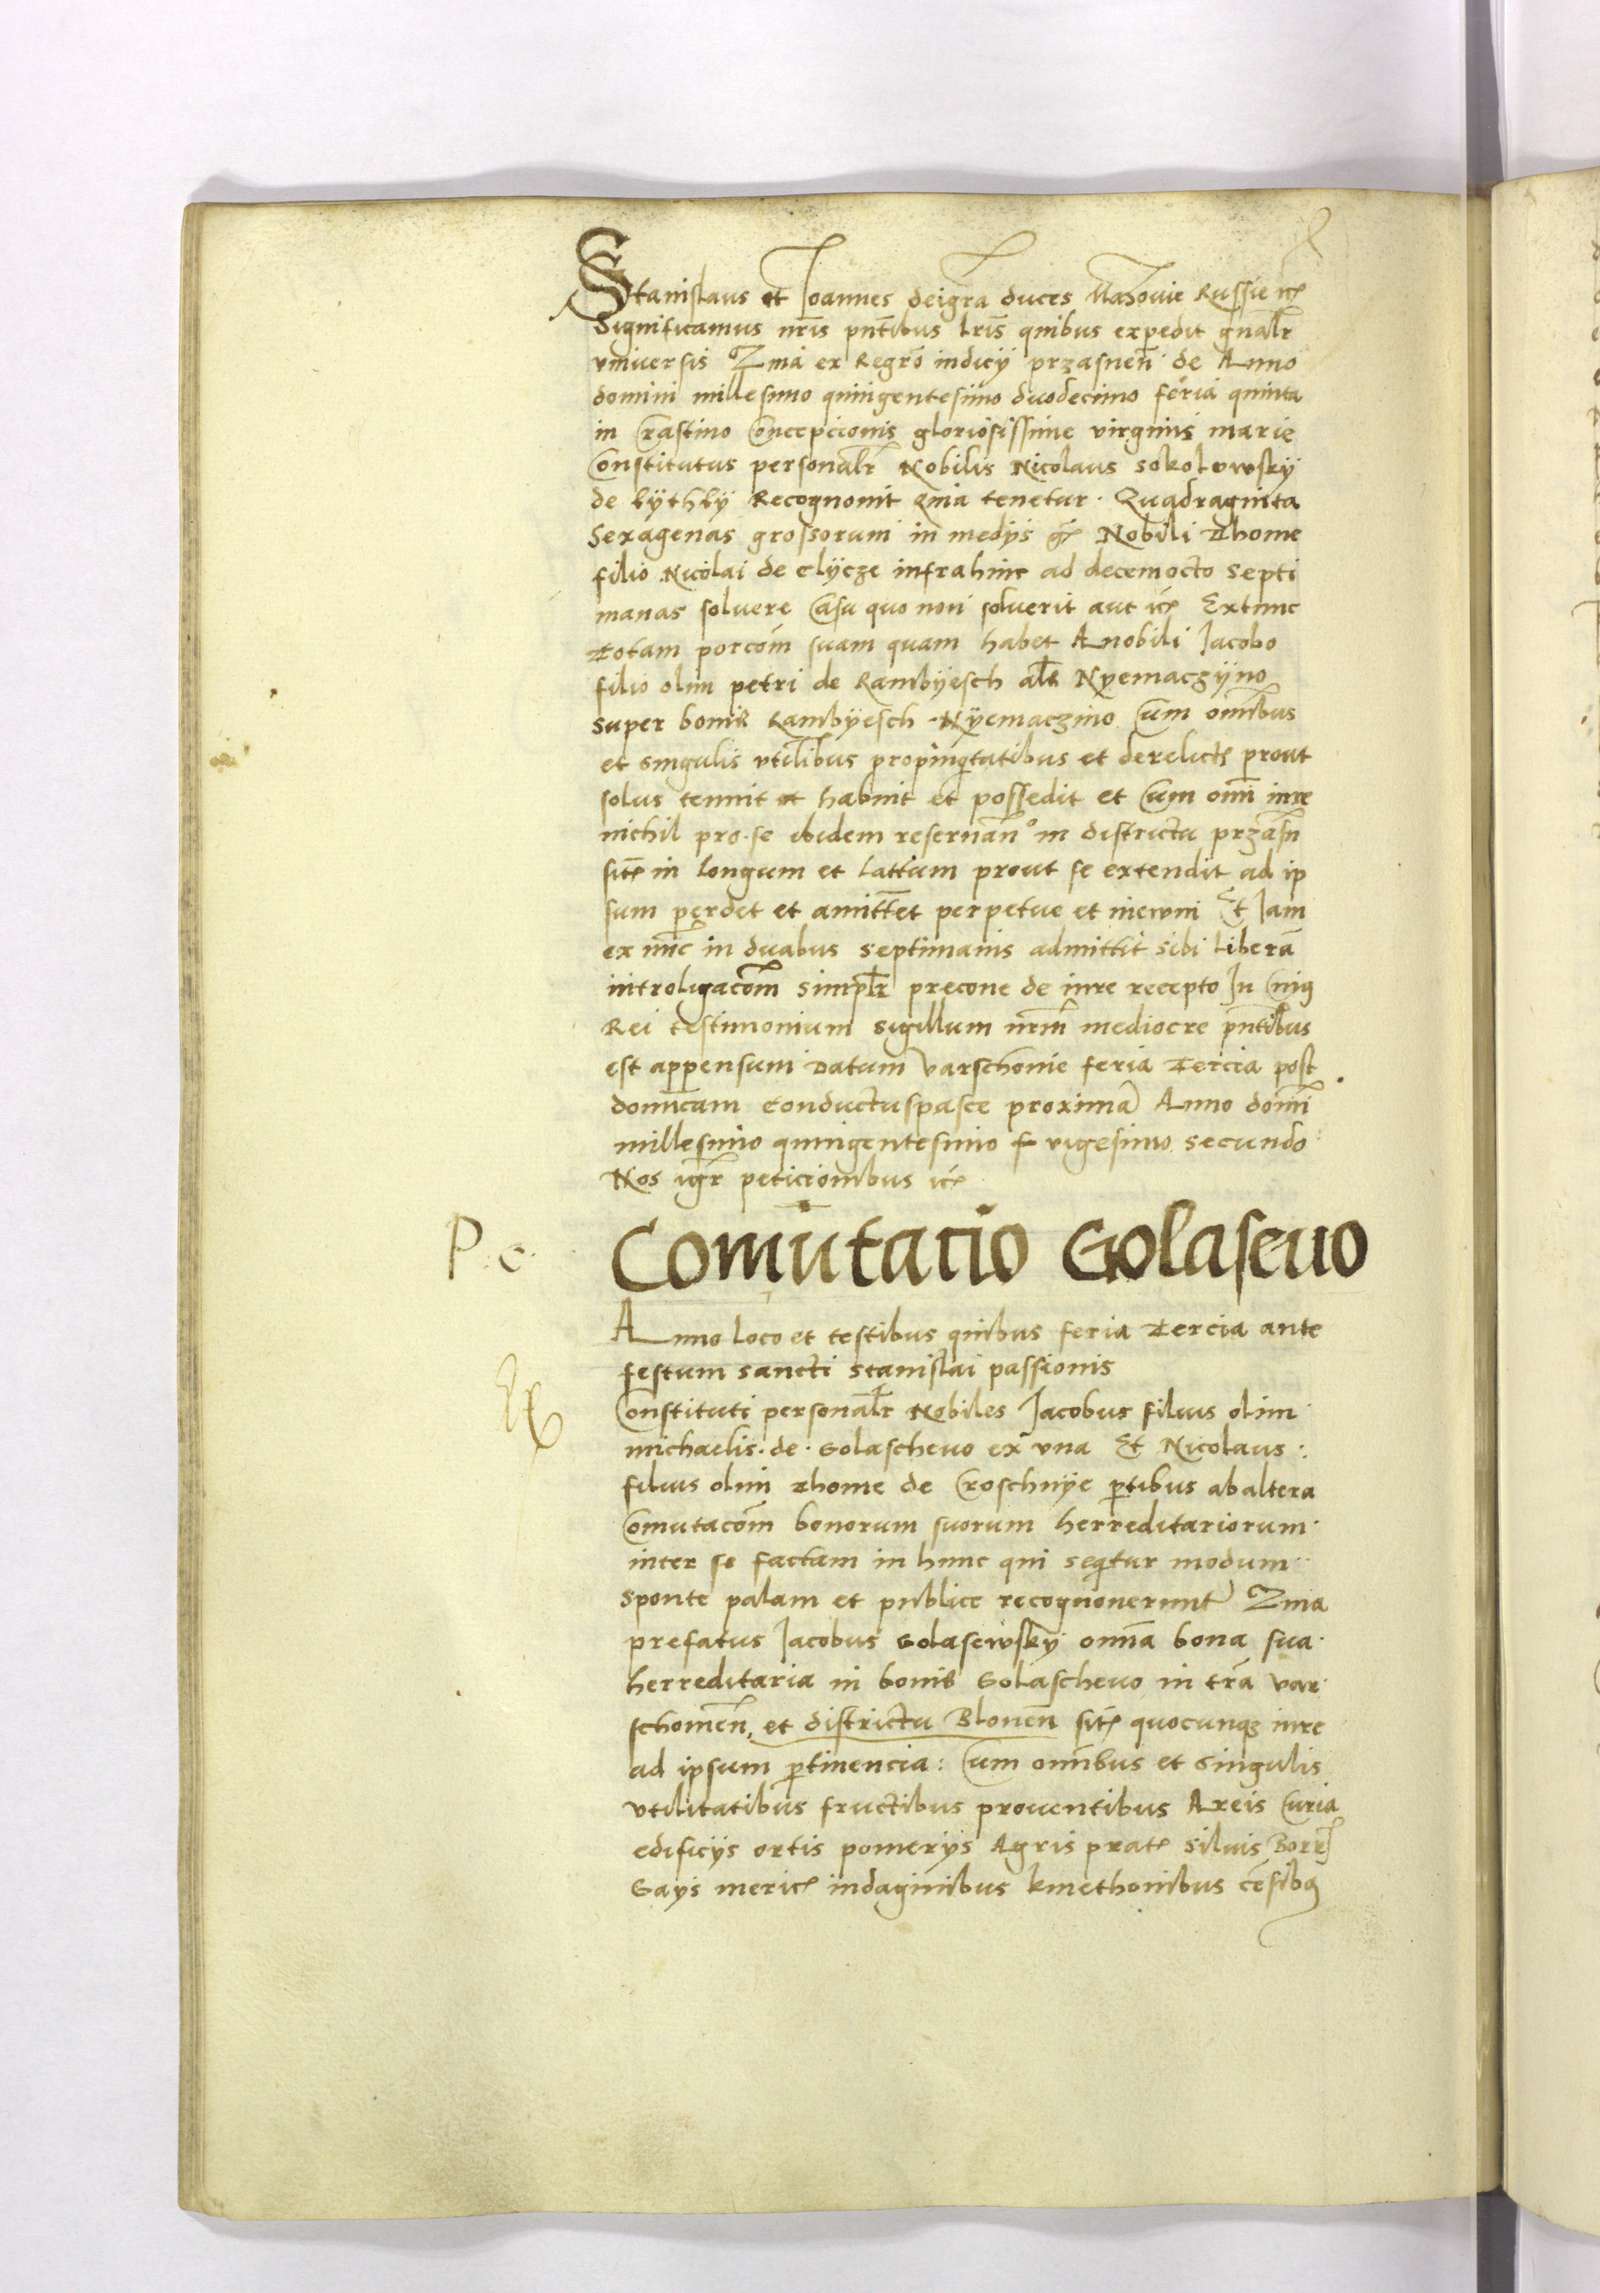 Stanislaus et Joannes deigra duces Mazouie Russie rc
Significamus nris pntibus lris quibus expedit gnalr
vniuersis Quia ex Regro iudicij przasnen de Anno
domini millesimo quingentesimo duodecimo feria quinta
in Crastino Concepcionis gloriosissime virginis marie
Constitutus personalr Nobilis Nicolaus sokolowsky
de lÿthlÿ Recognouit Quia tenetur. Quadraginta
Sexagenas grossorum in medijs gr Nobili Thome
filio Nicolai de clÿcze infrahinc ad decemocto septi
manas soluere Casu quo non soluerit aut rc Extunc
Totam porcom suam quam habet A nobili Jacobo
filio olim petri de Rambÿesch als Nyemaczÿno
super bonis Rambÿesch Nÿemaczino Cum omnibus
et singulis vtilibus propinqtatibus et derelict prout
solus tenuit et habuit et possedit et Cum omi iure
nichil pro se ibidem reseruan in districtu przasn
sit in longum et lattum prout se extendit ad ip
sum perdet et amittet perpetue et in ewm Et Jam
ex nunc in duabus septimanis admittit sibi liberam
introligacom simplr precone de iure recepto In Cuius
Rei testimonium sigillum nrm mediocre pntibus
est appensum Datum varschouie feria Tercia post
domcam conductuspasce proxima Anno domi
millesimo quingentesimo vigesimo secundo
Nos igr peticionibus rc
P. c. Comutatio Golaseuo
Anno loco et testibus quibus feria Tercia ante
festum sancti stanislai passionis
Constituti personalr Nobiles Jacobus filius olim
michaelis de Golascheuo ex vna Et Nicolaus
filius olim Thome de Croschnÿe ptibus abaltera
Comutacom bonorum suorum herreditariorum
inter se factam in hunc qui sequitur modum
sponte palam et publice recognouerunt Quia
prefatus Jacobus Golasewsky omia bona sua
herreditaria in bonis Golascheuo in tra var
schouien et districtu Blonen sit quocunq iure
ad ipsum ptinencia: Cum omibus et singulis
vtilitatibus fructibus prouentibus Areis Curia
edificijs ortis pomerijs Agris prat siluis Borr
Gays meric indaginibus kmethonibus cesibq